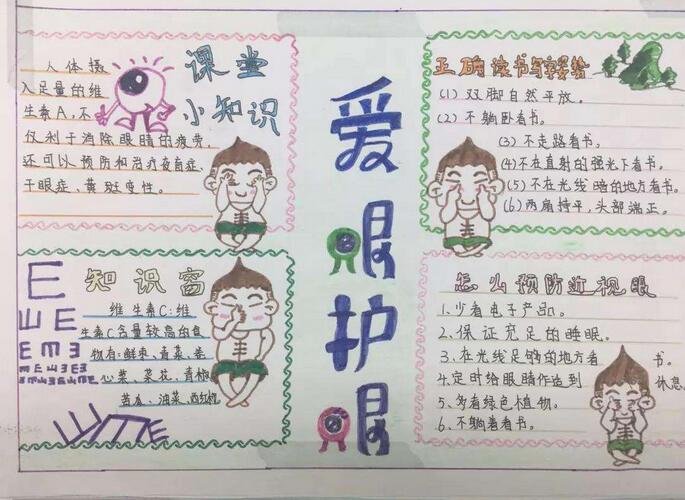 课堂
小知识
人体摄
入足量的维
生素A,不
仅利于消除眼睛的疲劳,
还可以预防和治疗夜盲症、
干眼症、黄斑变性。
知识窗
维生素C:维
生素C含量较高的食
物有:鲜枣、青菜、卷
心菜、菜花、青椒
苦瓜、油菜、西红柿
E
ШE
EmЭ
爱眼护眼
正确读书写字姿势
(1)双脚自然平放。
(2)不躺卧看书。
(3)不走路看书。
(4)不在直射的强光下看书。
(5)不在光线暗的地方看书。
(6)两肩持平,头部端正。
怎么预防近视眼
1.少看电子产品。
2.保证充足的睡眠。
3.在光线足够的地方看书。
4.定时给眼睛作适到休息
5.多看绿色植物。
6.不躺着看书。